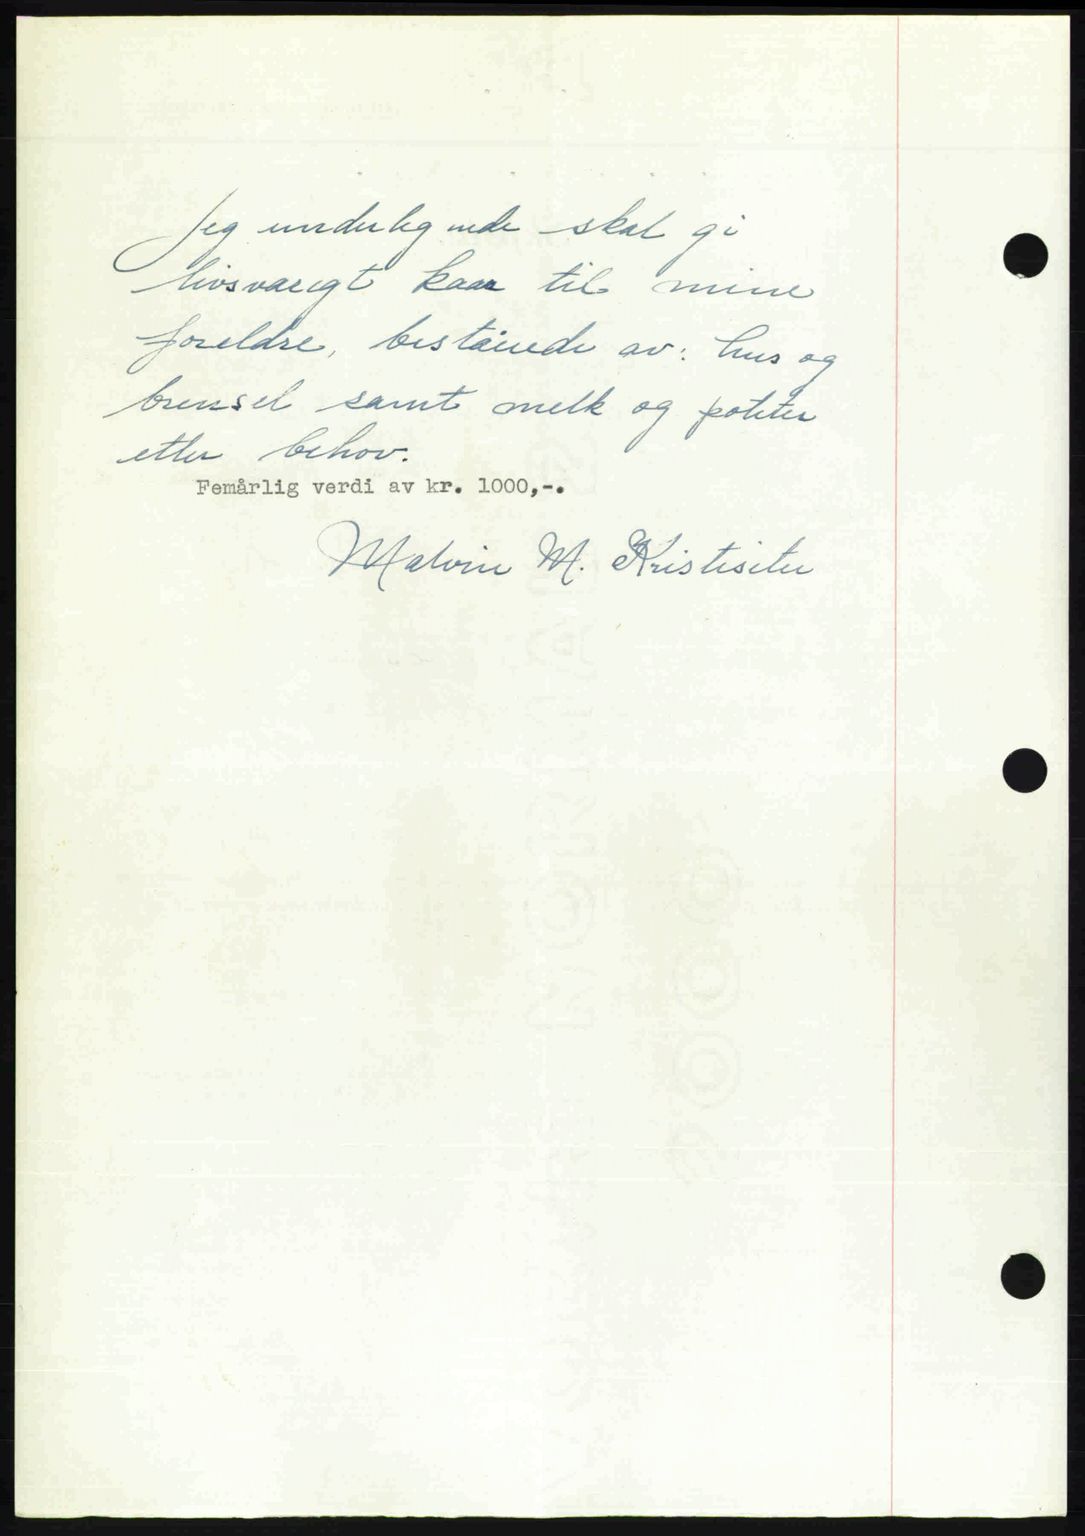 Jeg underlignede skal gi
livsvarigt kaar til mine
foreldre, beståuede av: hus og
brensel samt melk og poteter
etter behov.
Femårlig verdi av kr. 1000,-.
Malvin M. Kristiseter